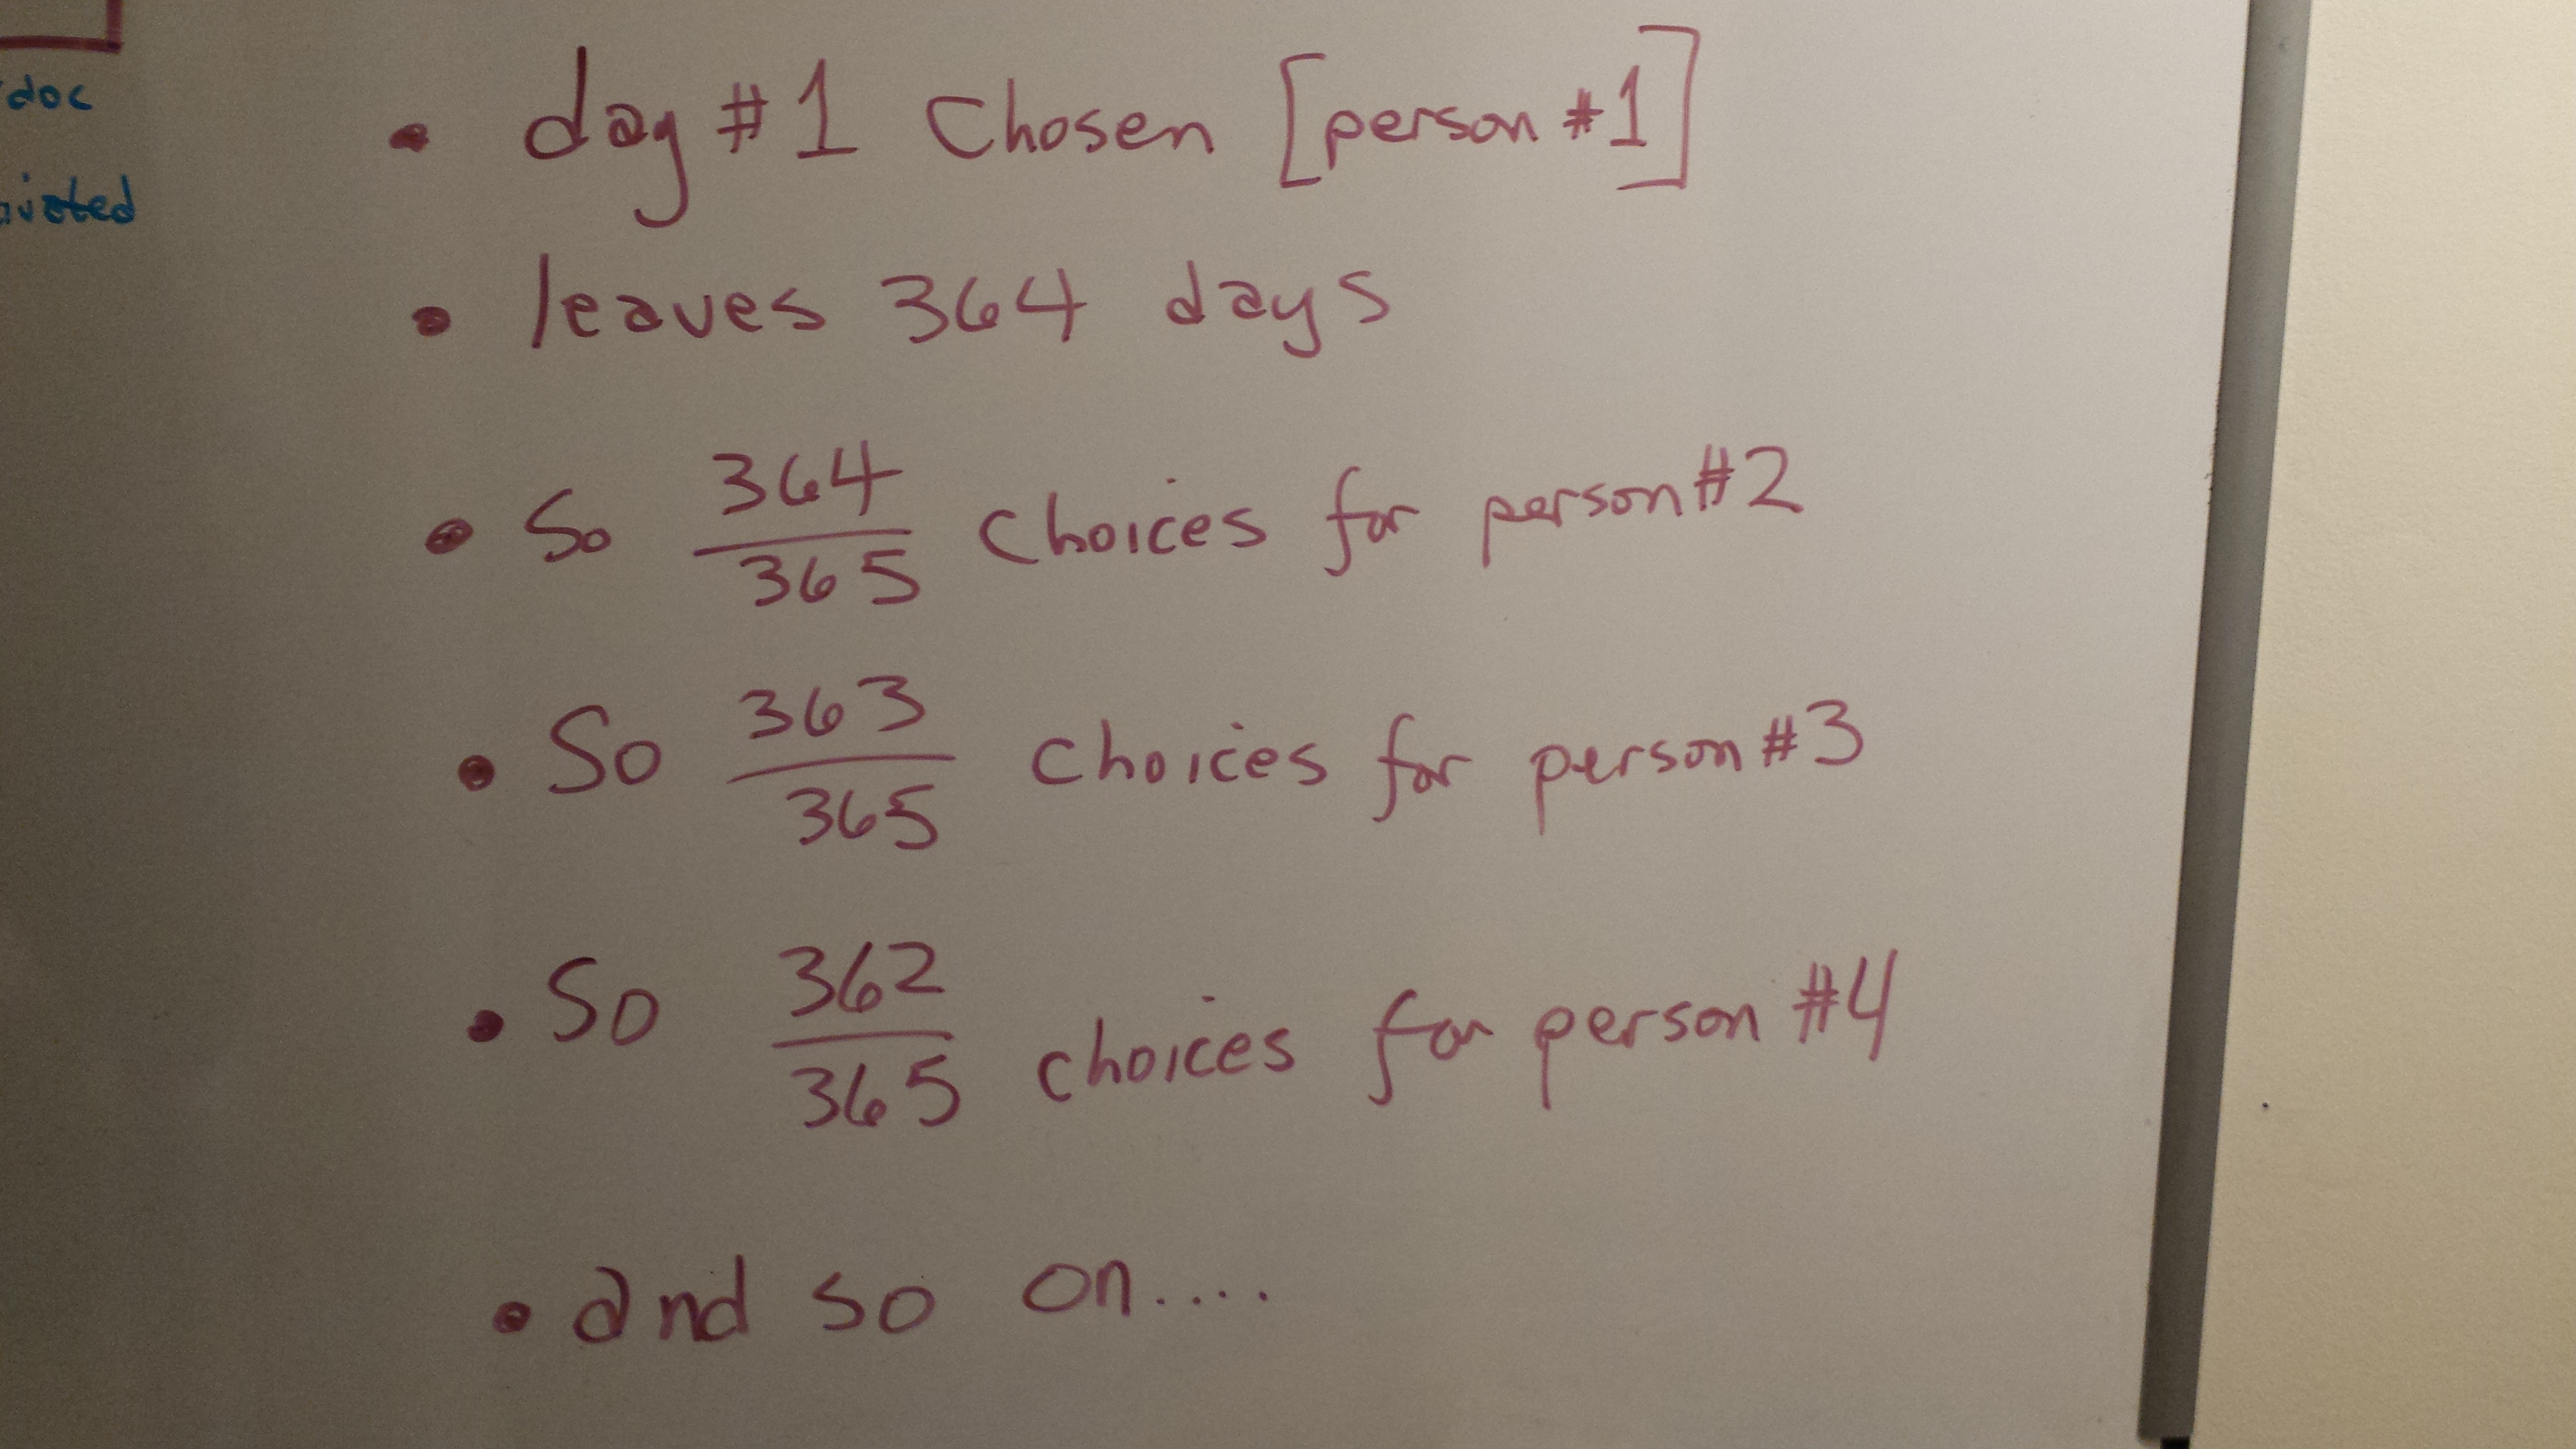 doc
• day #1 Chosen [person #1]
• leaves 364 days
• So 364/365 choices for person #2
• So 363/365 choices for person #3
• So 362/365 choices for person #4
• and so on....